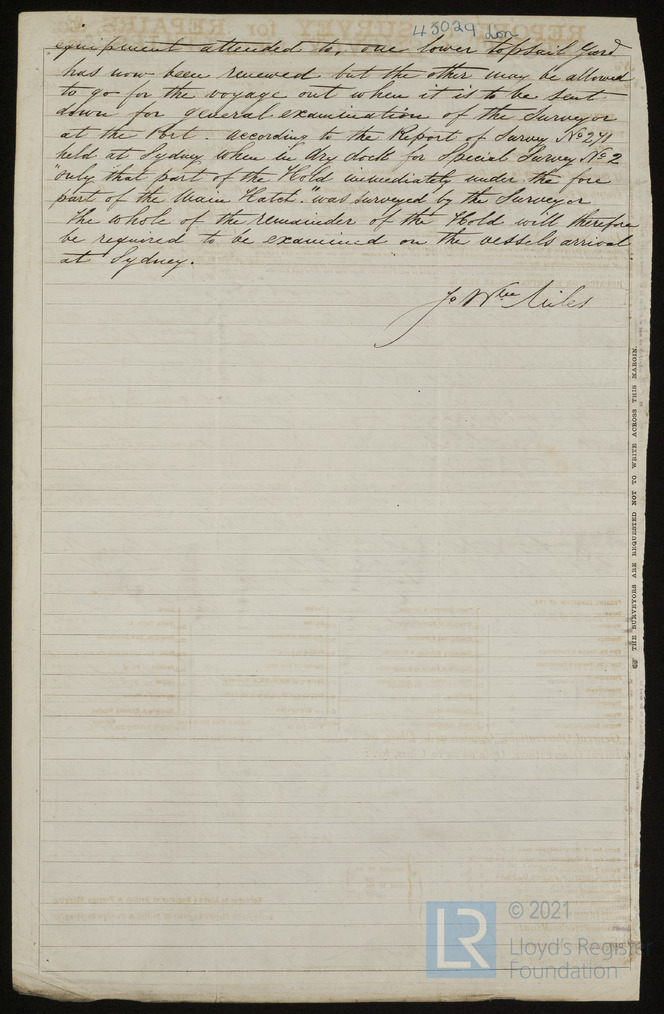 45029 Lon
equipment attended to, one lower topsail Yard
has now been renewed but the other may be allowed
to go for the voyage out when it is to be sent
down for general examination of the Surveyor
at the Port. According to the Report of Survey No 271
held at Sydney when in dry dock for Special Survey No 2
"only that part of the Hold immediately under the fore
part of the Main Hatch." was surveyed by the Surveyor
the whole of the remainder of the Hold will therefore
be required to be examined on the vessels arrival
at Sydney.
Jo Wm Miles
THE SURVEYORS ARE REQUESTED NOT TO WRITE ACROSS THIS MARGIN.
LR
© 2021
Lloyd's Register
Foundation